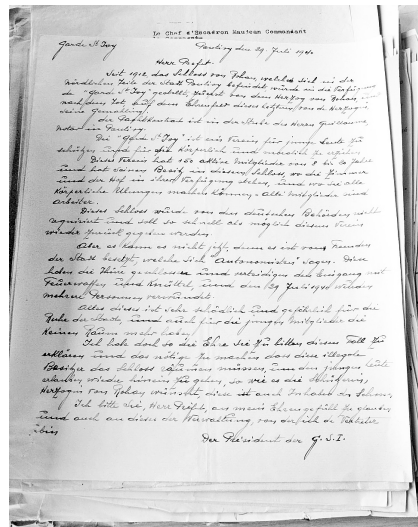 Le Chef d'Escadron Mauject Commandant
Garde St Ivy Pontivy den 29. Juli 1940
Herr Präfet.
Seit 1912, das Schloss von Rohan, welches sich in der
nördlichen Seite der Stadt Pontivy befindet wurde in die Verfügung
der "Garde St Ivy" gestellt, zuerst von dem Herzog von Rohan, und
nach dem Tod auf dem Ehrenfeld dieses letzten, von der Herzogin
seine Gemahlin.
der Pachtkontrakt ist in der Stube des Herrn Guillaume,
Notar in Pontivy.
Die "Garde St Ivy" ist ein Verein für junge Leute zu
schützen und für die körperlich und
Dieses Verein hat 160 aktive Mitglieder von 8 bis 20 Jahre
und hat seinen Besitz in diesem Schloss, wo die Zimmer
und der Hof in ihrer Verfügung stehen, und wo sie alle
körperliche Übungen machen können. Alle Mitglieder sind
Arbeiter.
Dieses Schloss wird von den deutschen Behörden nicht
requiriert und soll so schnell als möglich diesem Verein
wieder zurück gegeben werden.
Aber es kann es nicht jetzt, denn es ist von Fremden
der Stadt besetzt, welche sich Autonomisten sagen. Diese
haben die Thüre geschlossen und verteidigen den Eingang mit
Feuerwaffen und Knüttel, und den 29 Juli 1940 wurden
mehrere Personen verwundet.
Alles dieses ist sehr schädlich und gefährlich für die
Ruhe der Stadt, und auch für die jungen Mitglieder die
keinen Raum mehr haben.
Ich habe doch so die Ehre Sie zu bitten diesen Fall zu
erklären und das nötige zu machen dass diese illegale
Besitzer das Schloss räumen müssen, und den jungen Leute
erlauben wieder hinein zu gehen, so wie es die
Herzogin von Rohan wünscht, diese ist auch Inhaber des
Ich bitte Sie, Herr Präfet, an mein Ehrengefühl zu glauben
und auch an dieses der Verwaltung, von der ich der Vertreter
bin
Der Präsident der G.S.I.